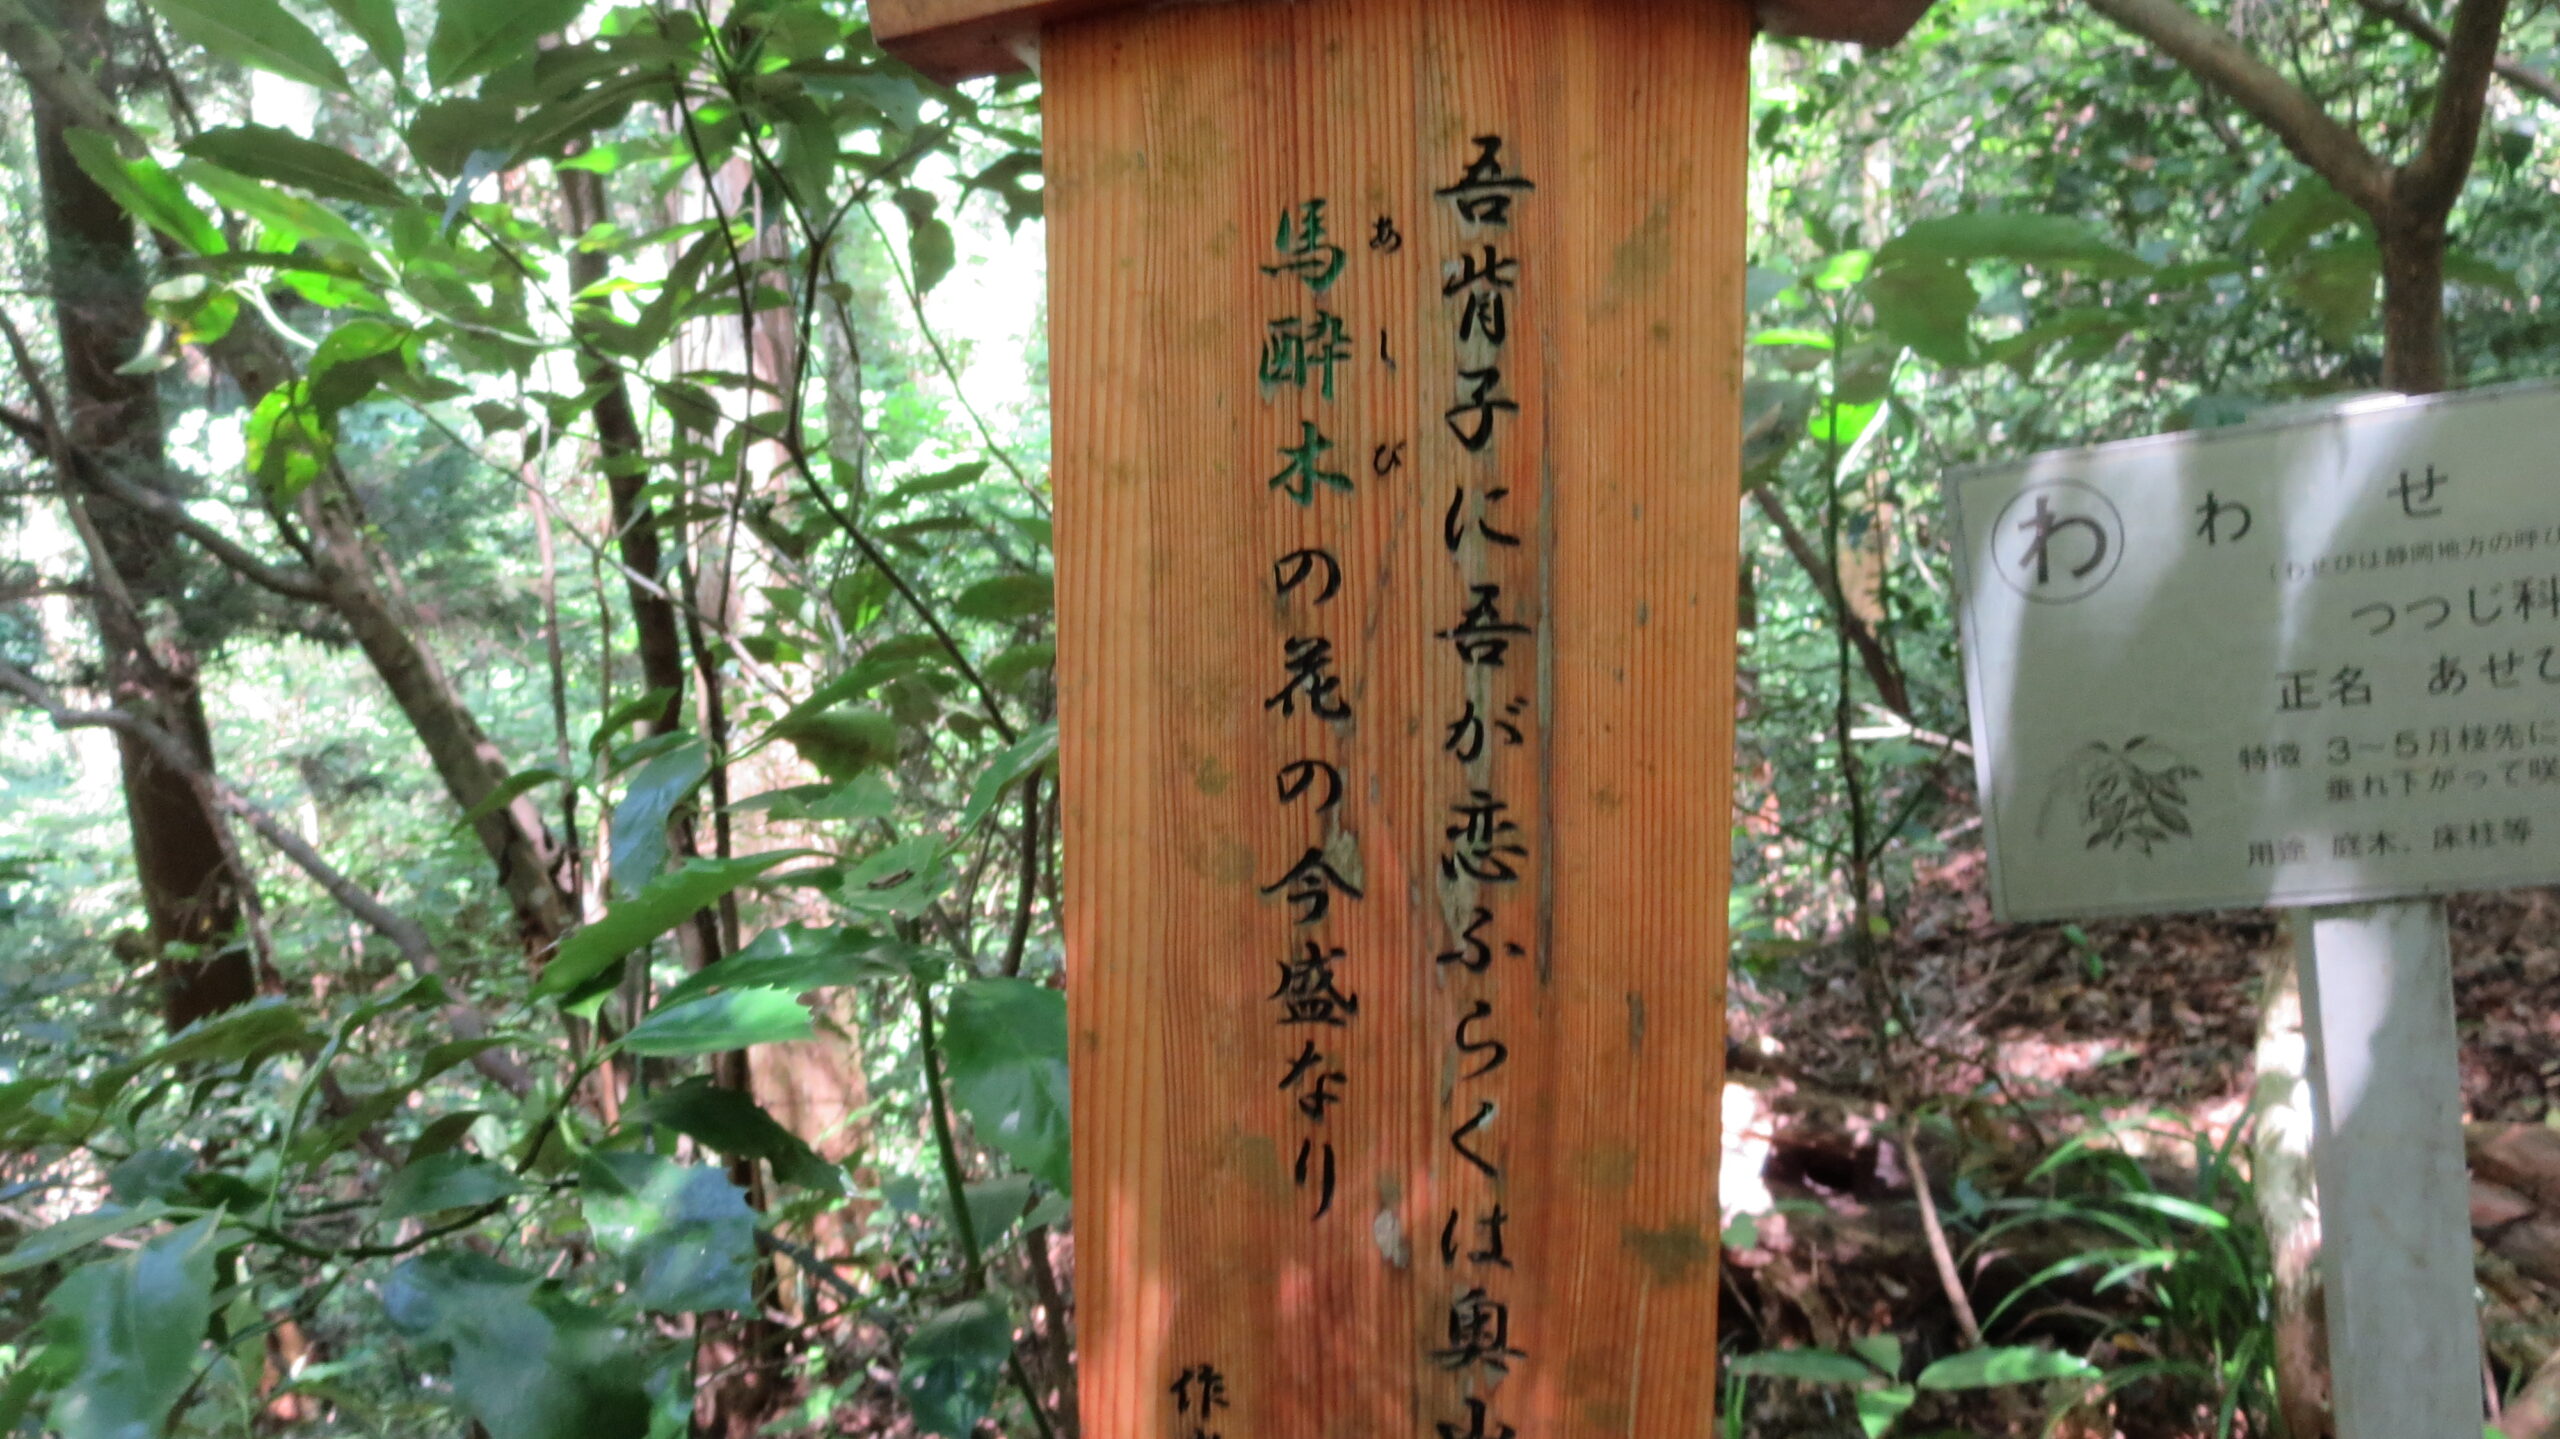 吾背子に吾が恋ふらくは奥山
あしび
馬酔木の花の今盛なり
作
わ
わ せ
(わせびは静岡地方の呼び
つつじ科
正名 あせび
特徴 3〜5月枝先に
垂れ下がって咲
用途 庭木、床柱等